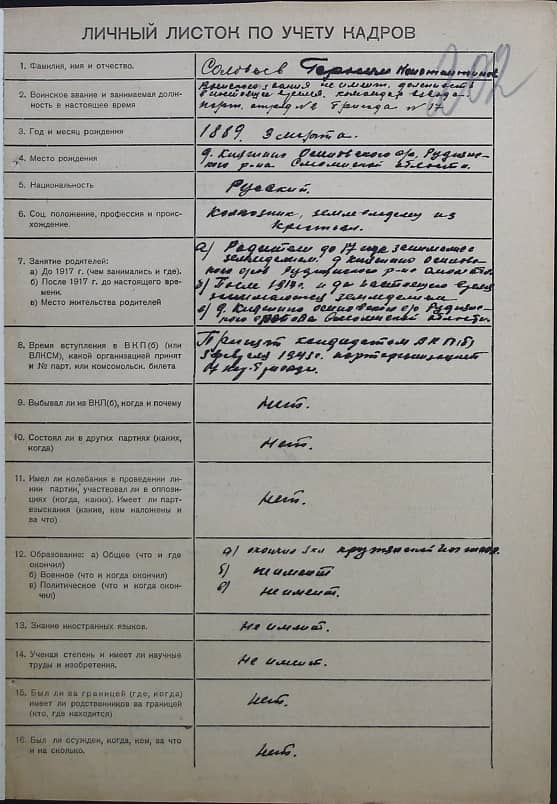 ЛИЧНЫЙ ЛИСТОК ПО УЧЕТУ КАДРОВ
202
1. Фамилия, имя и отчество.
Соловьев
2. Воинское звание и занимаемая долж-
ность в настоящее время
Воинского звания не имеет, должность
в настоящее время командир взвода
парт. отряд № бригада № 17
3. Год и месяц рождения
1889. 3 марта.
4. Место рождения
Смоленской области.
5. Национальность
Русский.
6. Соц. положение, профессия и проис-
хождение.
Колхозник, земледелец из
крестьян.
7. Занятие родителей:
а) До 1917 г. (чем занимались и где).
б) После 1917 г. до настоящего вре-
мени.
в) Место жительства родителей
а) Родители до 17 года занимались
земледелием
б) После 1917г. и до настоящего время
занимаются земледелием
в)
8. Время вступления в ВКП(б) (или
ВЛКСМ), какой организацией принят
и № парт. или комсомольск. билета
Принят кандидатом ВКП(б)
февраля парторганизацией
бригады.
9. Выбывал ли из ВКП(б), когда и почему
Нет.
10. Состоял ли в других партиях (каких,
когда)
Нет.
11. Имел ли колебания в проведении ли-
нии партии, участвовал ли в оппози-
циях (когда, каких). Имеет ли парт-
взыскания (какие, кем наложены и
за что)
Нет.
12. Образование: а) Общее (что и где
окончил)
б) Военное (что и когда окончил)
в) Политическое (что и когда окон-
чил)
а) окончил
б) не имеет
в) не имеет.
13. Знание иностранных языков.
Не имеет.
14. Ученая степень и имеет ли научные
труды и изобретения.
Не имеет.
15. Был ли за границей (где, когда)
имеет ли родственников за границей
(кто, где находится)
Нет.
16. Был ли осужден, когда, кем, за что
и на сколько.
Нет.